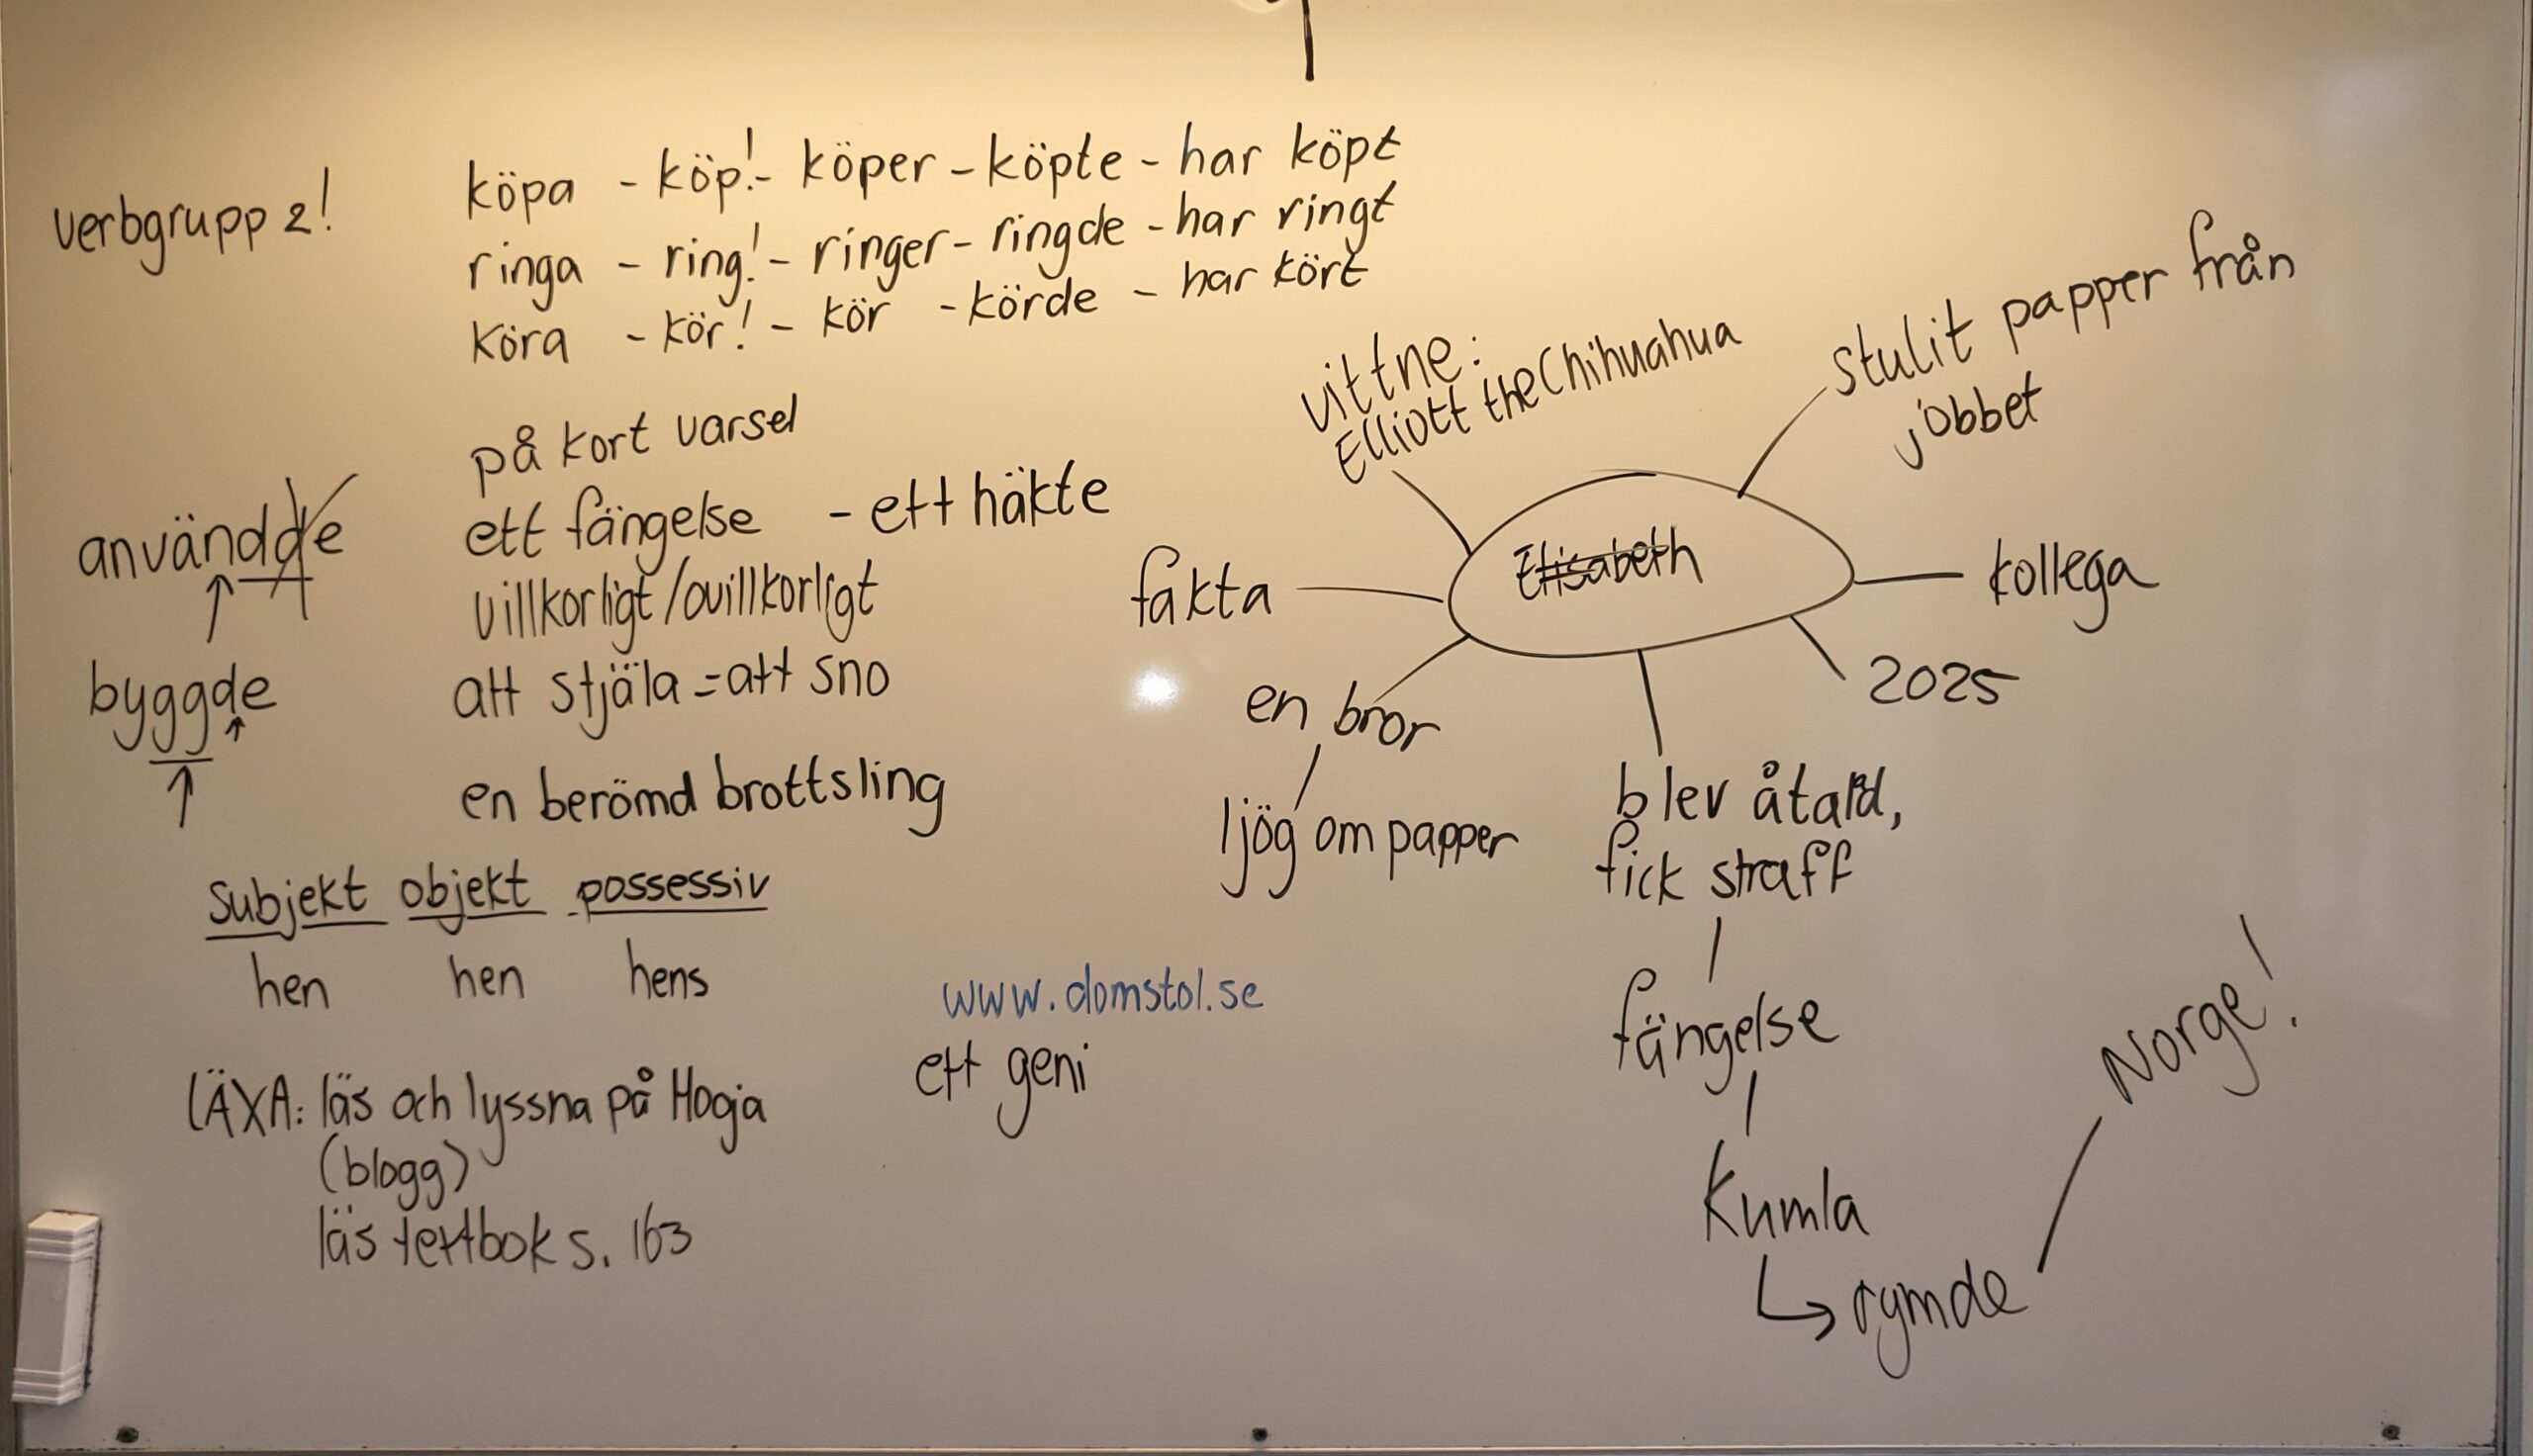 verbgrupp 2!
köpa - köp! - köper - köpte - har köpt
ringa - ring! - ringer - ringde - har ringt
köra - kör! - kör - körde - har kört
på kort varsel
ett fängelse - ett häkte
villkorligt/ovillkorligt
att stjäla = att sno
en berömd brottsling
användde
byggde
subjekt objekt possessiv
hen hen hens
LÄXA: läs och lyssna på Hoga
(blogg)
läs textbok s. 163
www.domstol.se
ett geni
Elisabeth
vittne:
Elliott the Chihuahua
stulit papper från
jobbet
kollega
2025
fakta
en bror
ljög om papper
blev åtald,
fick straff
fängelse
Kumla
rymde
Norge!